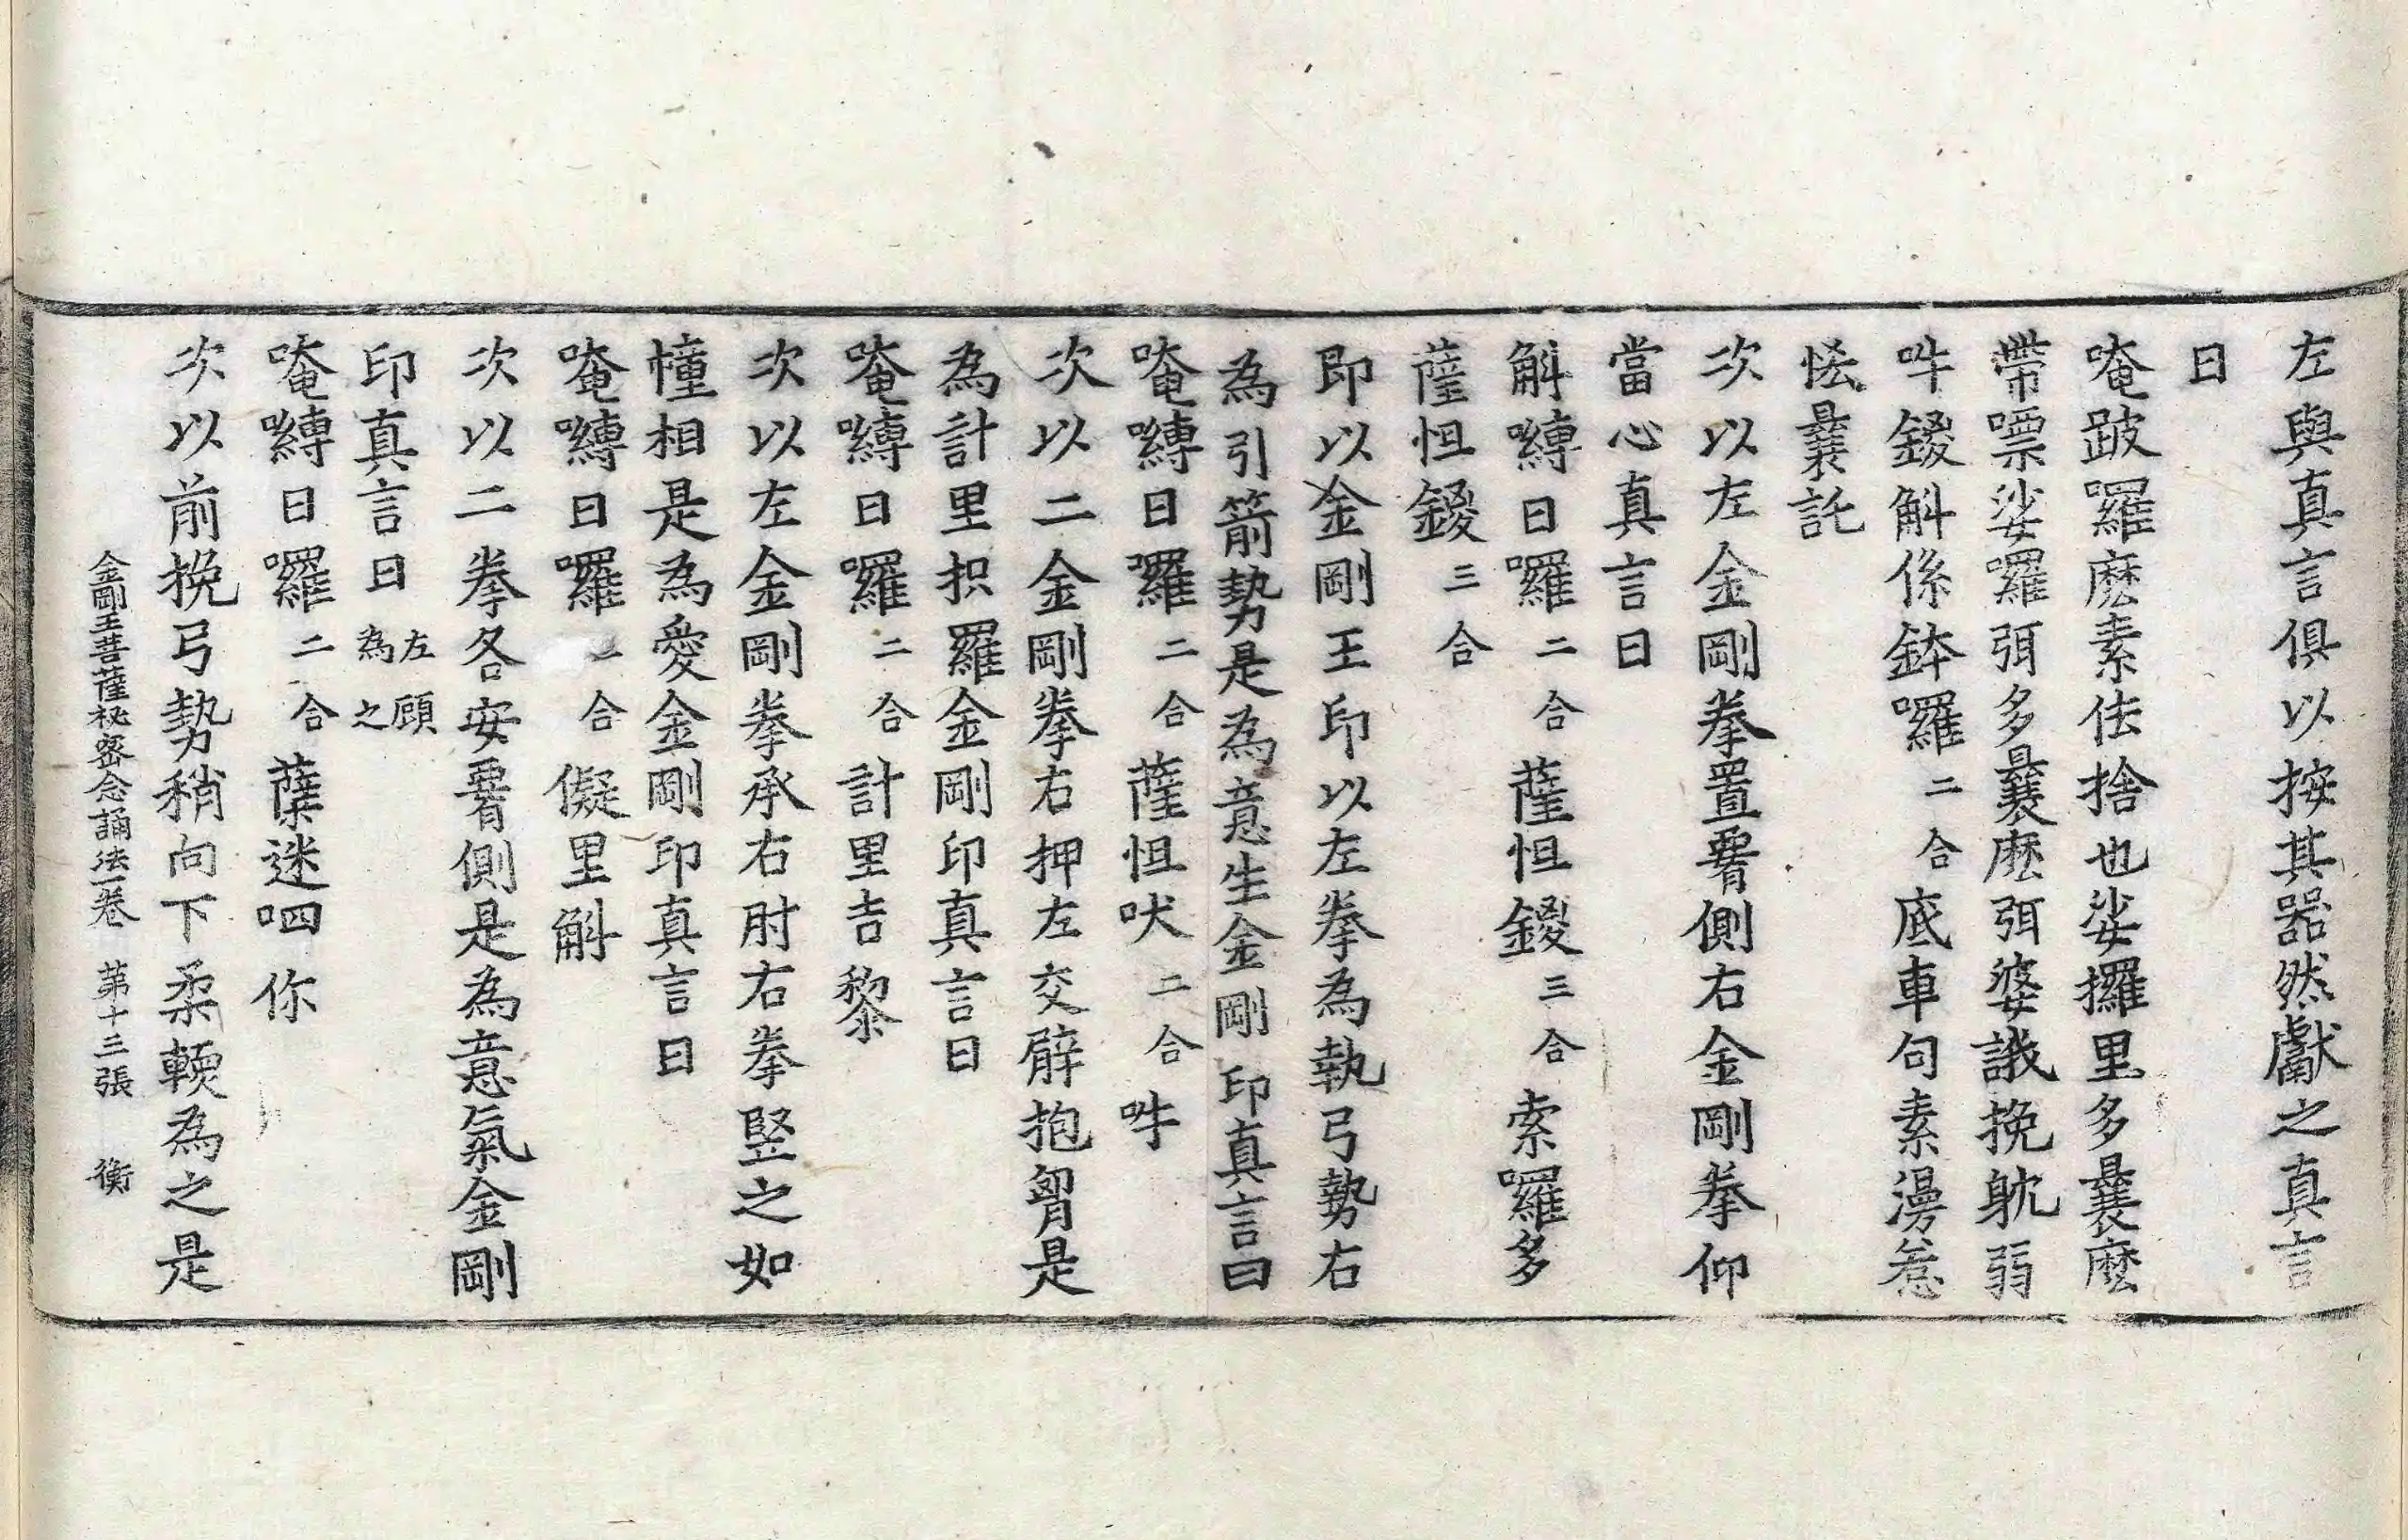 左與真言俱以按其器然獻之真言
曰
唵跛囉麽素佉捨也娑攞里多曩麽
帶嘌娑囉弭多曩麽弭婆誐挽躭弱
吽鑁斛係鉢囉二合底車句素漫惹
恡曩託
次以左金剛拳置䏶側右金剛拳仰
當心真言曰
斛嚩日囉二合薩怛鑁三合索囉多
薩怛鑁三合
即以金剛王印以左拳為執弓勢右
為引箭勢是為意生金剛印真言曰
唵嚩日囉二合薩怛吠二合吽
次以二金剛拳右押左交臂抱胷是
為計里枳羅金剛印真言曰
唵嚩日囉二合計里吉黎
次以左金剛拳承右肘右拳竪之如
幢相是為愛金剛印真言曰
唵嚩日囉二合儗里斛
次以二拳各安䏶側是為意氣金剛
印真言曰左顧為之
唵嚩日囉二合薩迷呬你
次以前挽弓勢稍向下柔輭為之是
金剛王菩薩秘密念誦法一卷 第十三張 衡